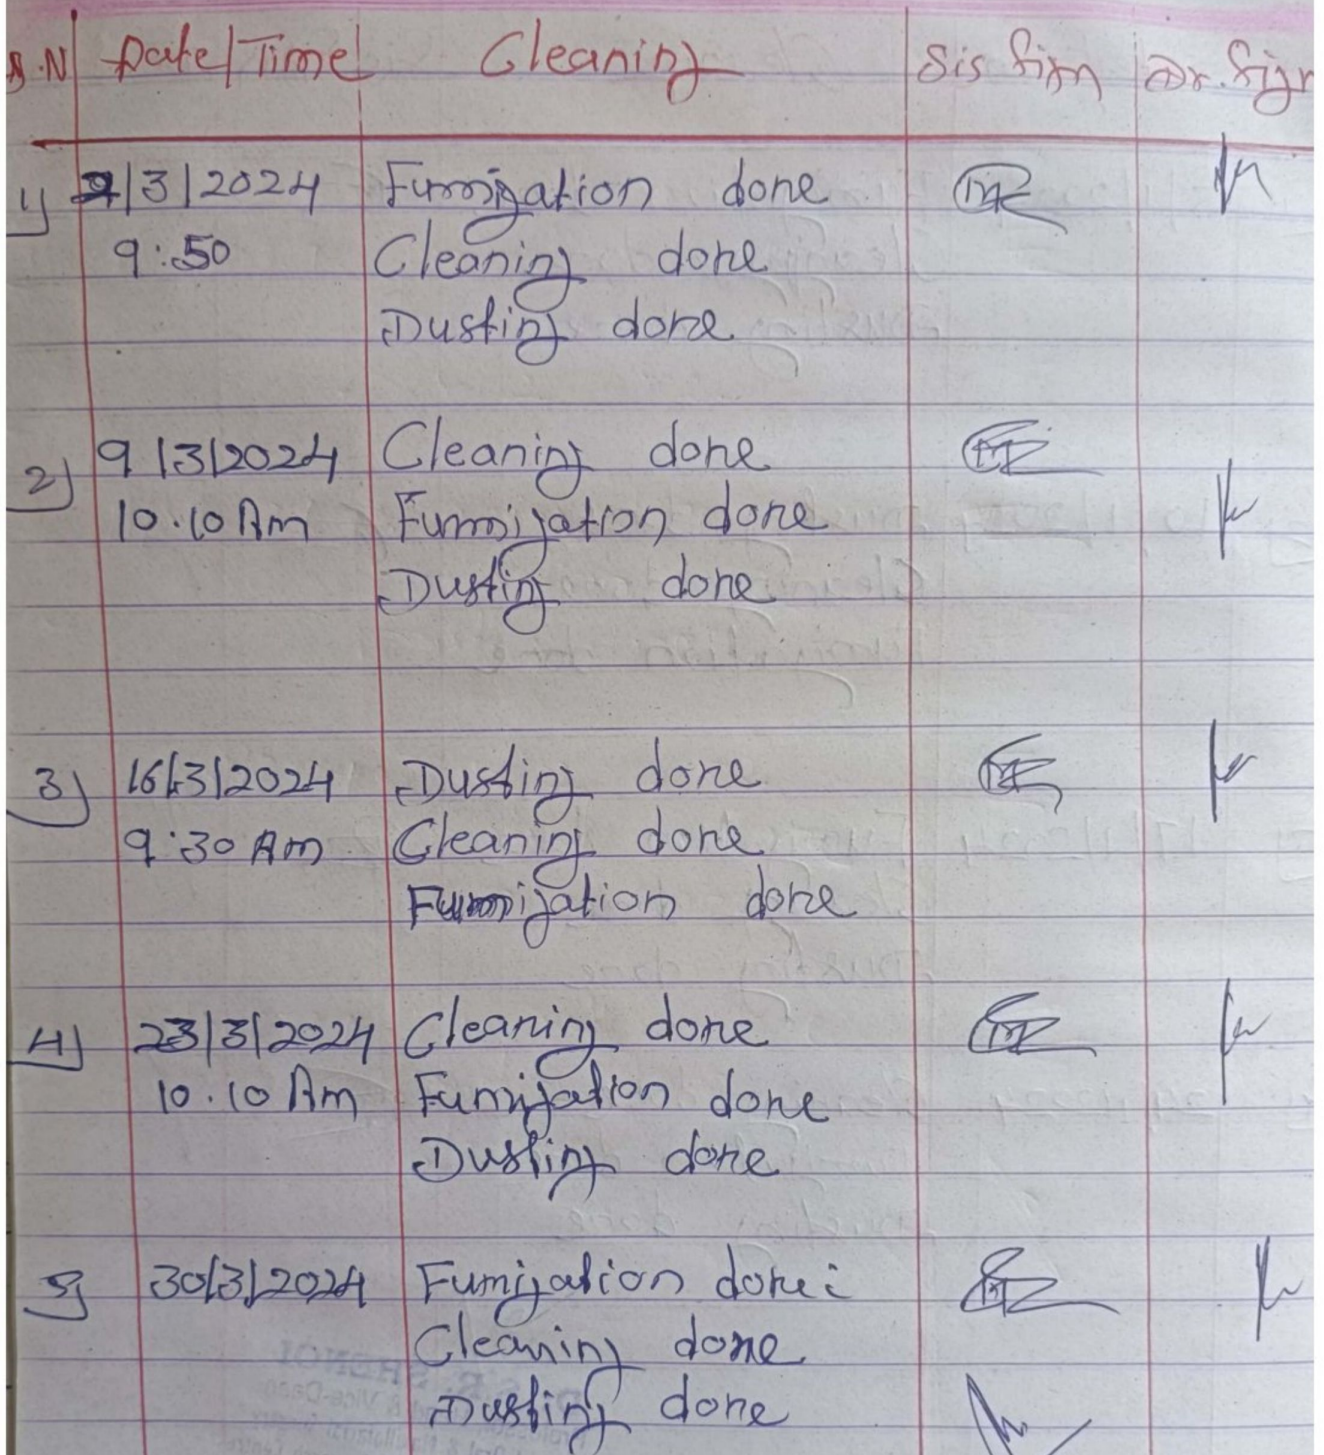 S.N Date/Time Cleaning Sis Sign Dr. Sign
1) /3/2024 Fumigation done
9:50 Cleaning done
Dusting done
2) 9/3/2024 Cleaning done
10.10 Am Fumigation done
Dusting done
3) 16/3/2024 Dusting done
9:30 Am Cleaning done
Fumigation done
4) 23/3/2024 Cleaning done
10.10 Am Fumigation done
Dusting done
5) 30/3/2024 Fumigation done
Cleaning done
Dusting done